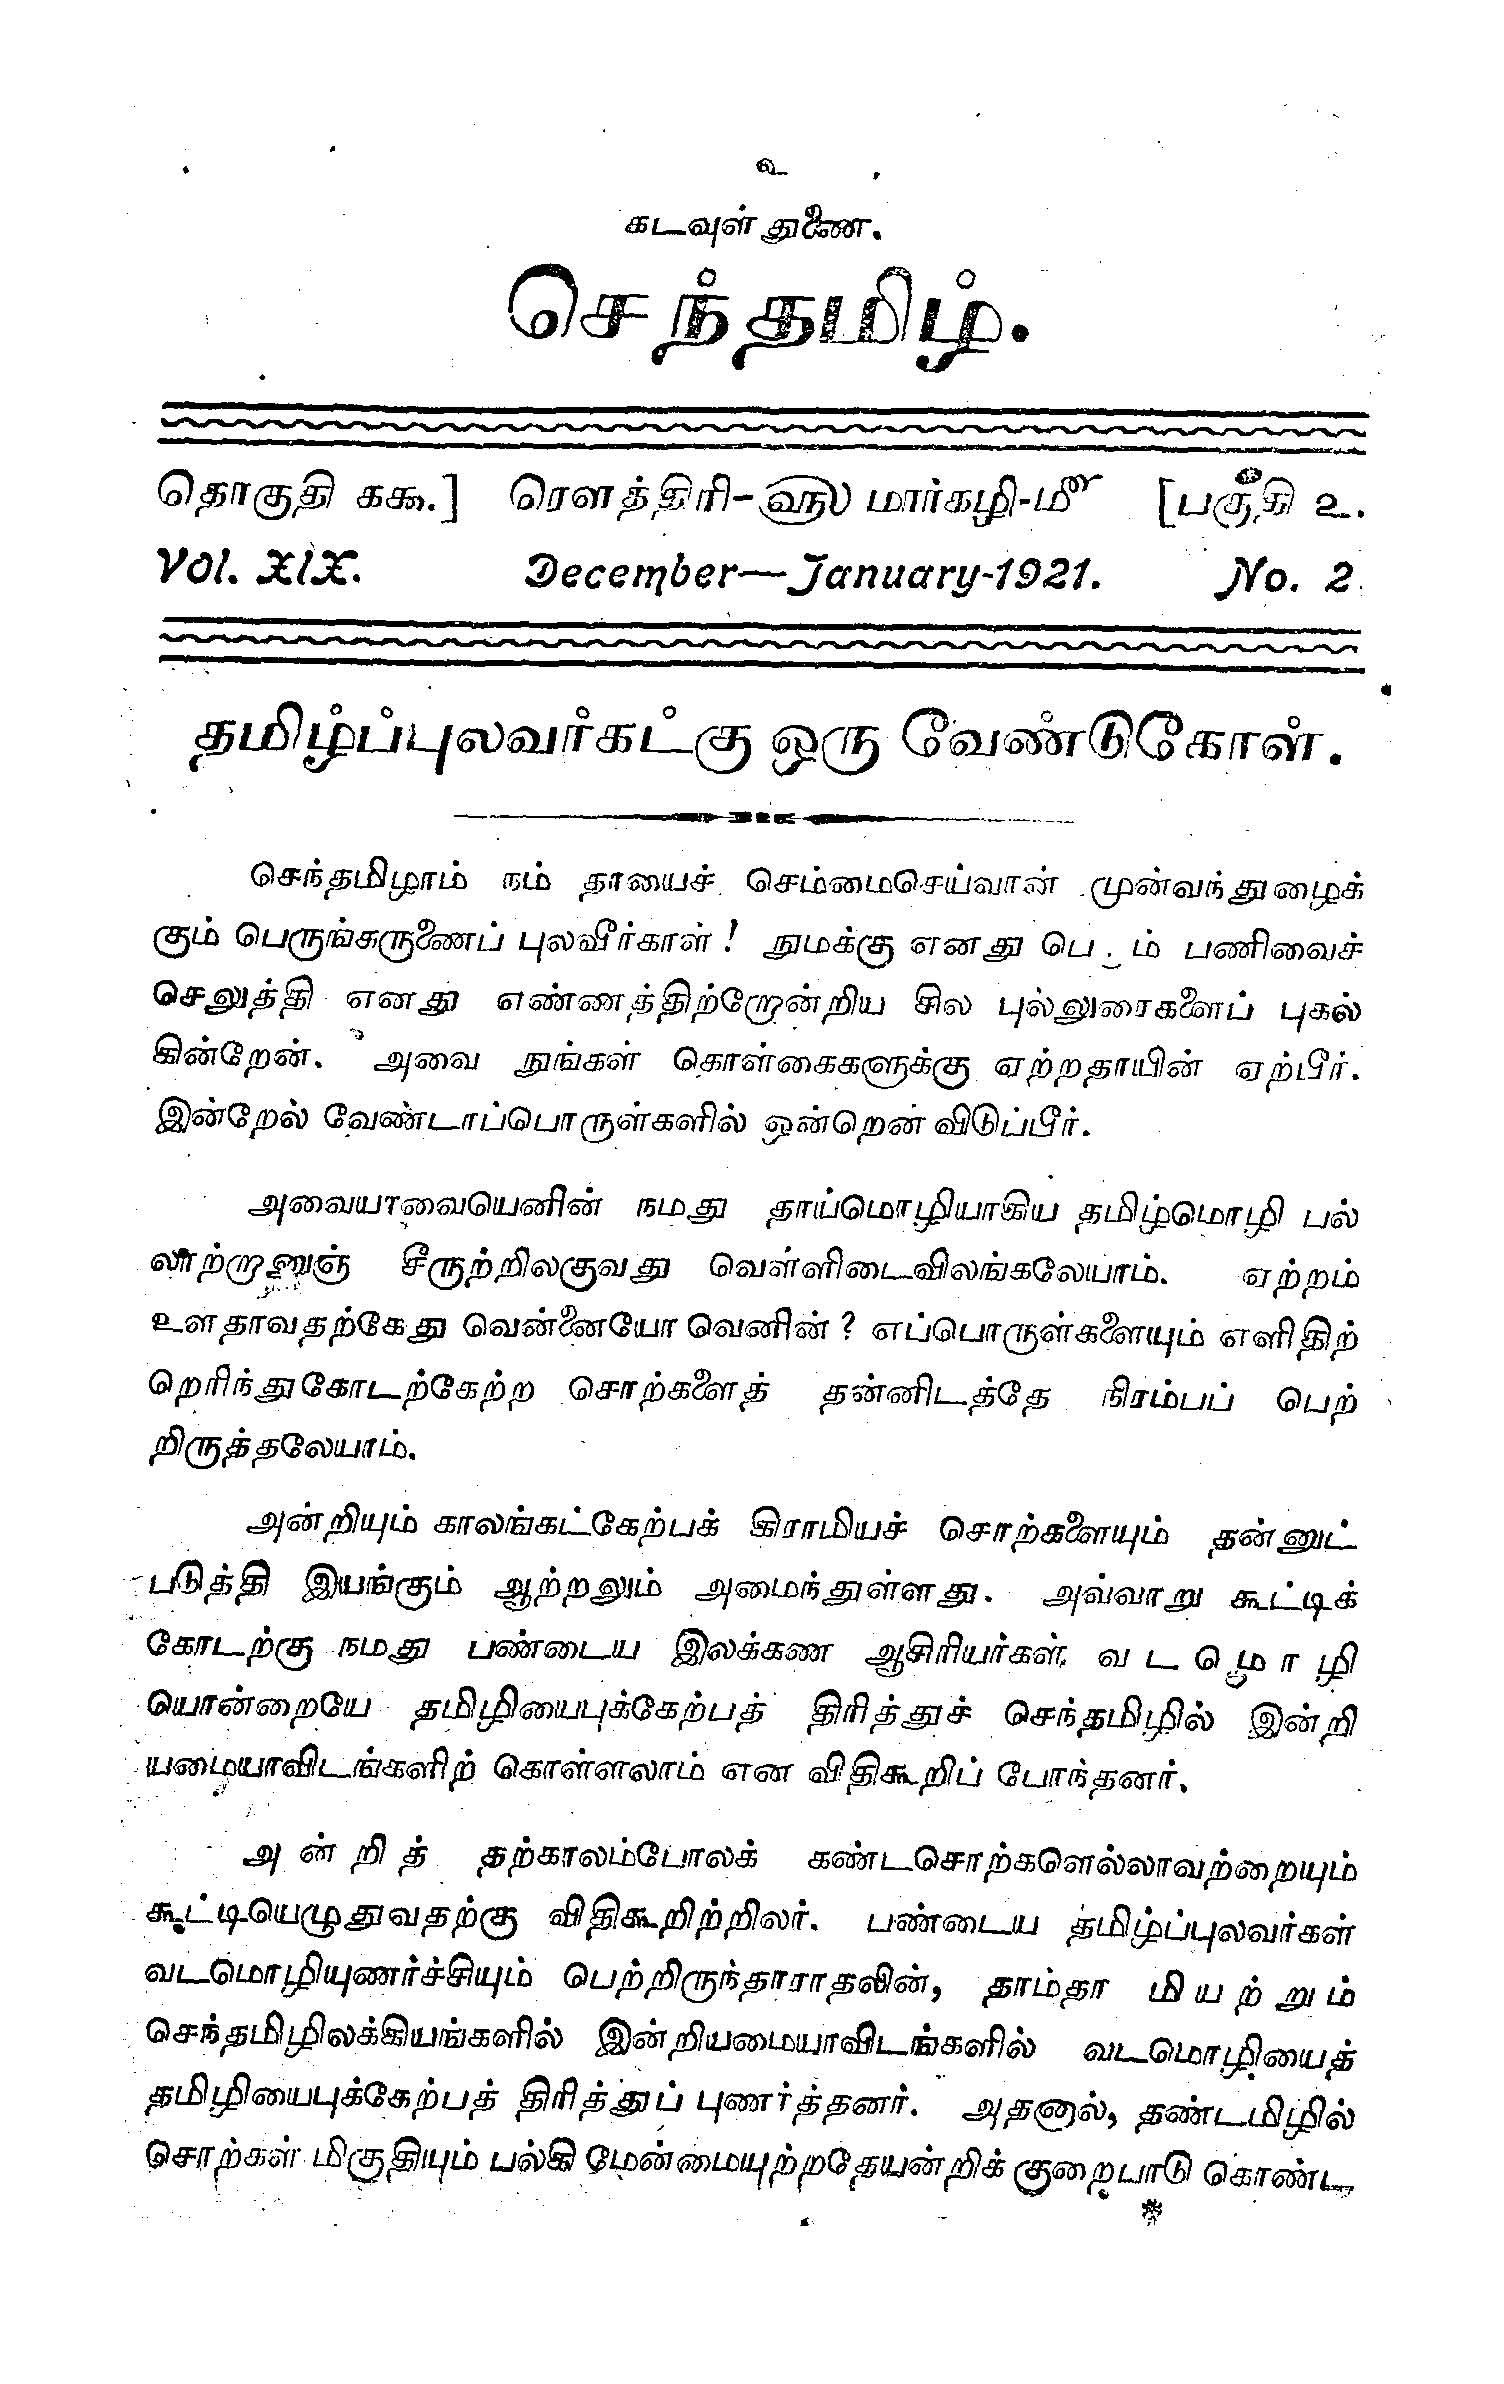 உ
கடவுள் துணை.
செந்தமிழ்.
தொகுதி ககூ.] ரௌத்திரி-௵ மார்கழி-௴ [பகுதி உ.
Vol. XIX. December—January-1921. No. 2
தமிழ்ப்புலவர்கட்கு ஒரு வேண்டுகோள்.
செந்தமிழாம் நம் தாயைச் செம்மைசெய்வான் முன்வந்துழைக்
கும் பெருங்கருணைப் புலவீர்காள்! நுமக்கு எனது பணிவைச்
செலுத்தி எனது எண்ணத்திற்றோன்றிய சில புல்லுரைகளைப் புகல்
கின்றேன். அவை நுங்கள் கொள்கைகளுக்கு ஏற்றதாயின் ஏற்பீர்.
இன்றேல் வேண்டாப்பொருள்களில் ஒன்றென் விடுப்பீர்.
அவையாவையெனின் நமது தாய்மொழியாகிய தமிழ்மொழி பல்
லாற்றானுஞ் சீருற்றிலகுவது வெள்ளிடைவிலங்கலேயாம். ஏற்றம்
உளதாவதற்கேது வென்னையோ வெனின்? எப்பொருள்களையும் எளிதிற்
றெரிந்துகோடற்கேற்ற சொற்களைத் தன்னிடத்தே நிரம்பப் பெற்
றிருத்தலேயாம்.
அன்றியும் காலங்கட்கேற்பக் கிராமியச் சொற்களையும் தன்னுட்
படுத்தி இயங்கும் ஆற்றலும் அமைந்துள்ளது. அவ்வாறு கூட்டிக்
கோடற்கு நமது பண்டைய இலக்கண ஆசிரியர்கள் வடமொழி
யொன்றையே தமிழியைபுக்கேற்பத் திரித்துச் செந்தமிழில் இன்றி
யமையாவிடங்களிற் கொள்ளலாம் என விதிகூறிப் போந்தனர்.
அன்றித் தற்காலம்போலக் கண்டசொற்களெல்லாவற்றையும்
கூட்டியெழுதுவதற்கு விதிகூறிற்றிலர். பண்டைய தமிழ்ப்புலவர்கள்
வடமொழியுணர்ச்சியும் பெற்றிருந்தாராதலின், தாம்தா மியற்றும்
செந்தமிழிலக்கியங்களில் இன்றியமையாவிடங்களில் வடமொழியைத்
தமிழியைபுக்கேற்பத் திரித்துப் புணர்த்தனர். அதனால், தண்டமிழில்
சொற்கள் மிகுதியும் பல்கி மேன்மையுற்றதேயன்றிக் குறைபாடு கொண்ட
*